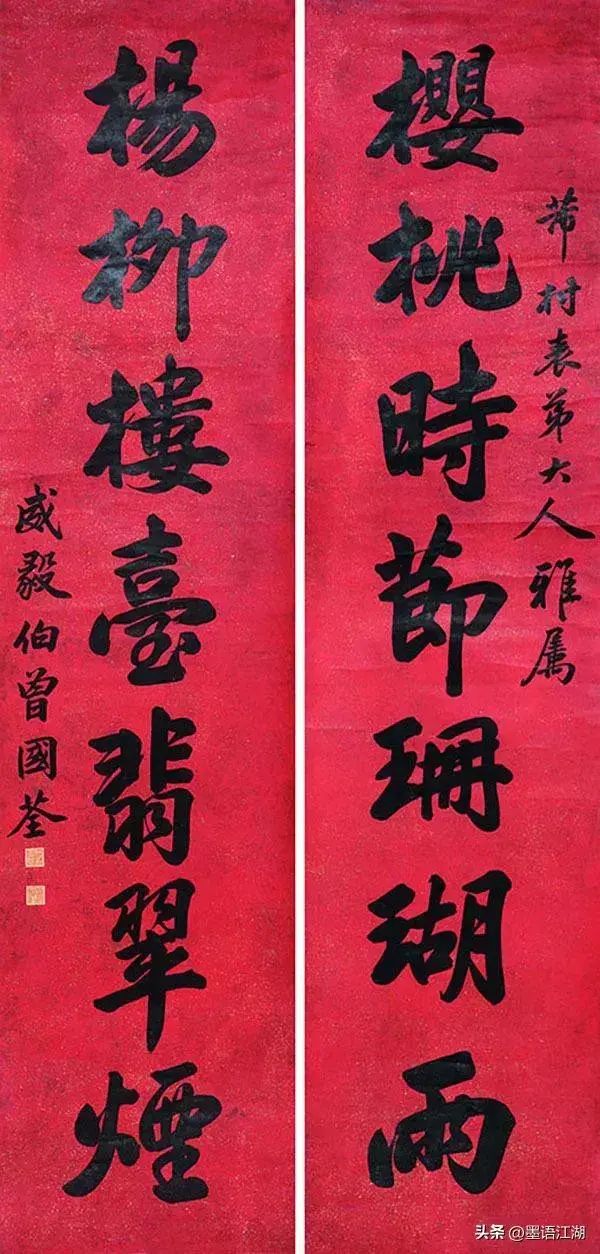 芾村表弟大人雅属
櫻桃時節珊瑚雨
楊柳樓臺翡翠煙
威毅伯曾國荃
头条 @墨语江湖